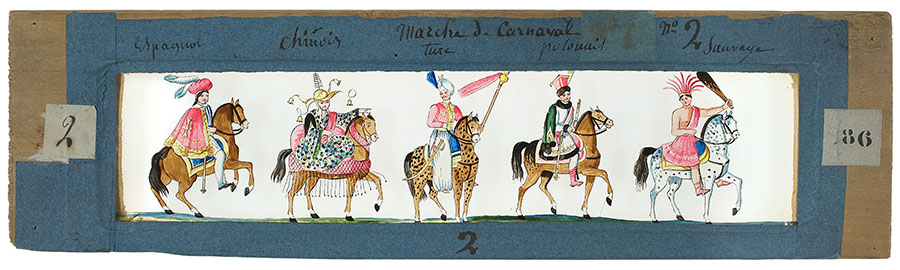 Marche de Carnaval Nº 2
Espagnol chinois turc polonais Sauvage
2
86
2